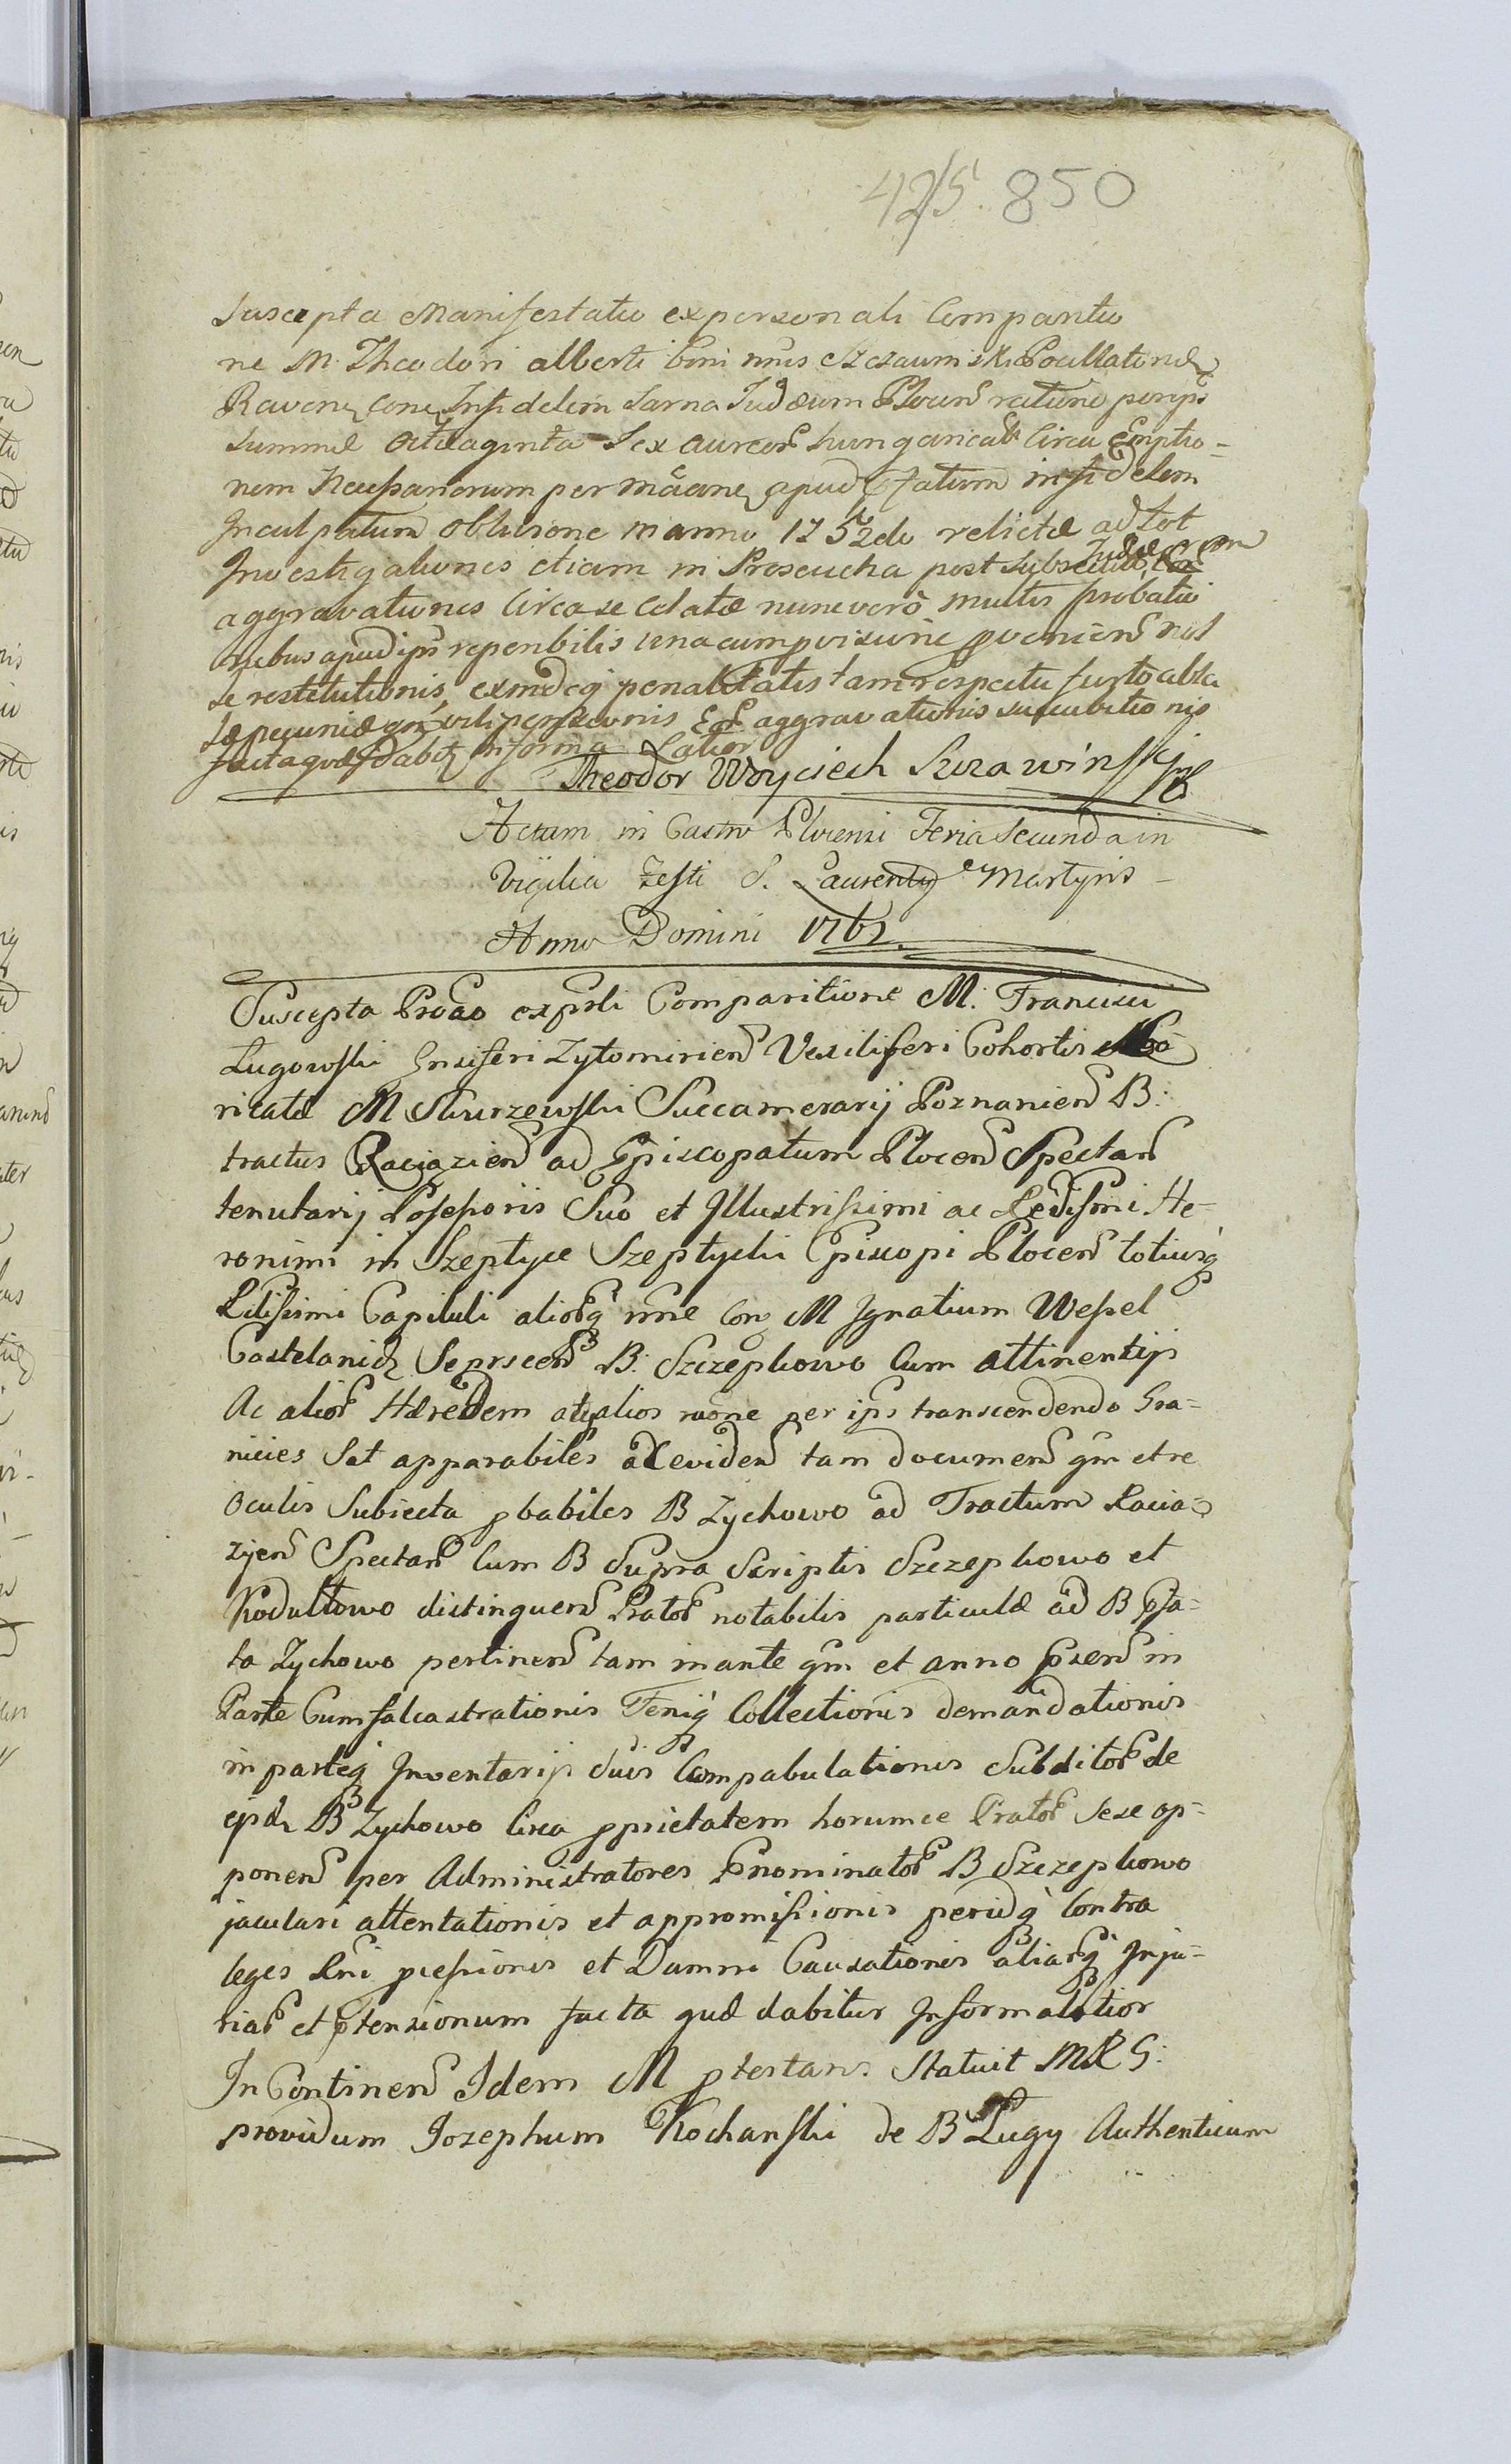 425. 850
Suscepta Manifestatio ex personali Comparitio
ne M. Theodori Alberti bini nnis Szczawinski Pocillatorid
Raven Con Infidelem Sarna Judæum Plocen ratione per ips
summæ octuaginta Sex aureor hungarical Circa Emptio-
nem per apud fatum infidelem
Inculpatum oblivione in anno 1752do relictæ ad tot
Investigationis etiam in Proseucha post subsecut Judæorum
aggravationes Circa se Celatæ nunc verò multis probatio
nibus apud ips reperibilis una cum provisione provenien
se restitutionis, exindeq penalitatis tam respectu furto abla
tæ pecuniæ qm vilipensionis et aggravationis succubitionis
facta quæ dabit in forma Latior
Theodor Woyciech Szczawinski
Actum in Castro Plocensi Feria Secunda in
Vigilia Festi S. Laurentij Martyris
Anno Domini 1762.
Suscepta Protāo ex psrli Comparitione M: Francisci
Lugowski Ensiferi Zytomirien Vexiliferi Cohortis
ricatæ M Skurzewski Succamerarij Poznanien B:
tractus Raciązien ad Episcopatum Plocen Spectan
tenutarij Possessoris Suo et Illustrissimi ac Rēdissmi He-
ronimi in Szeptyce Szeptycki Episcopi Plocen totiusq
Rdissimi Capituli aliorq nne Con M Ignatium Wessel
Castelanid Sieprscen B: Szczepkowo Cum attinentijs
Ac alior Hæredem atq alios raōne per ips transcendendo Gra=
nicies Sat apparabiles ac eviden tam documen qm et re
oculis Subiecta pbabiles B Zychowo ad Tractum Racią=
zjen Spectan Cum B Supra Scriptis Szczepkowo et
Kodułtowo distinguen Prator notabilis particulæ ad B Pfa=
ta Zychowo pertinen tam in ante qm et anno psen in
Parte Cum falcastrationis Feniq Collectionis demandationis
in parteq Inventarijs suis Compabulationis Subditor de
ejsd B Zychowo Circa pprietatem horumce Prator Sese op=
ponen per Administratores Pnominator B Szczepkowo
jaculari attentationis et appromissionis peridq Contra
leges Rni pressionis et Damni Causationis aliarq Inju=
riar et ptensionum facta quæ dabitur In forma Latior
In Continen Idem M ptestans Statuit MRG:
providum Jozephum Kochanski de B Lugy Authenticum